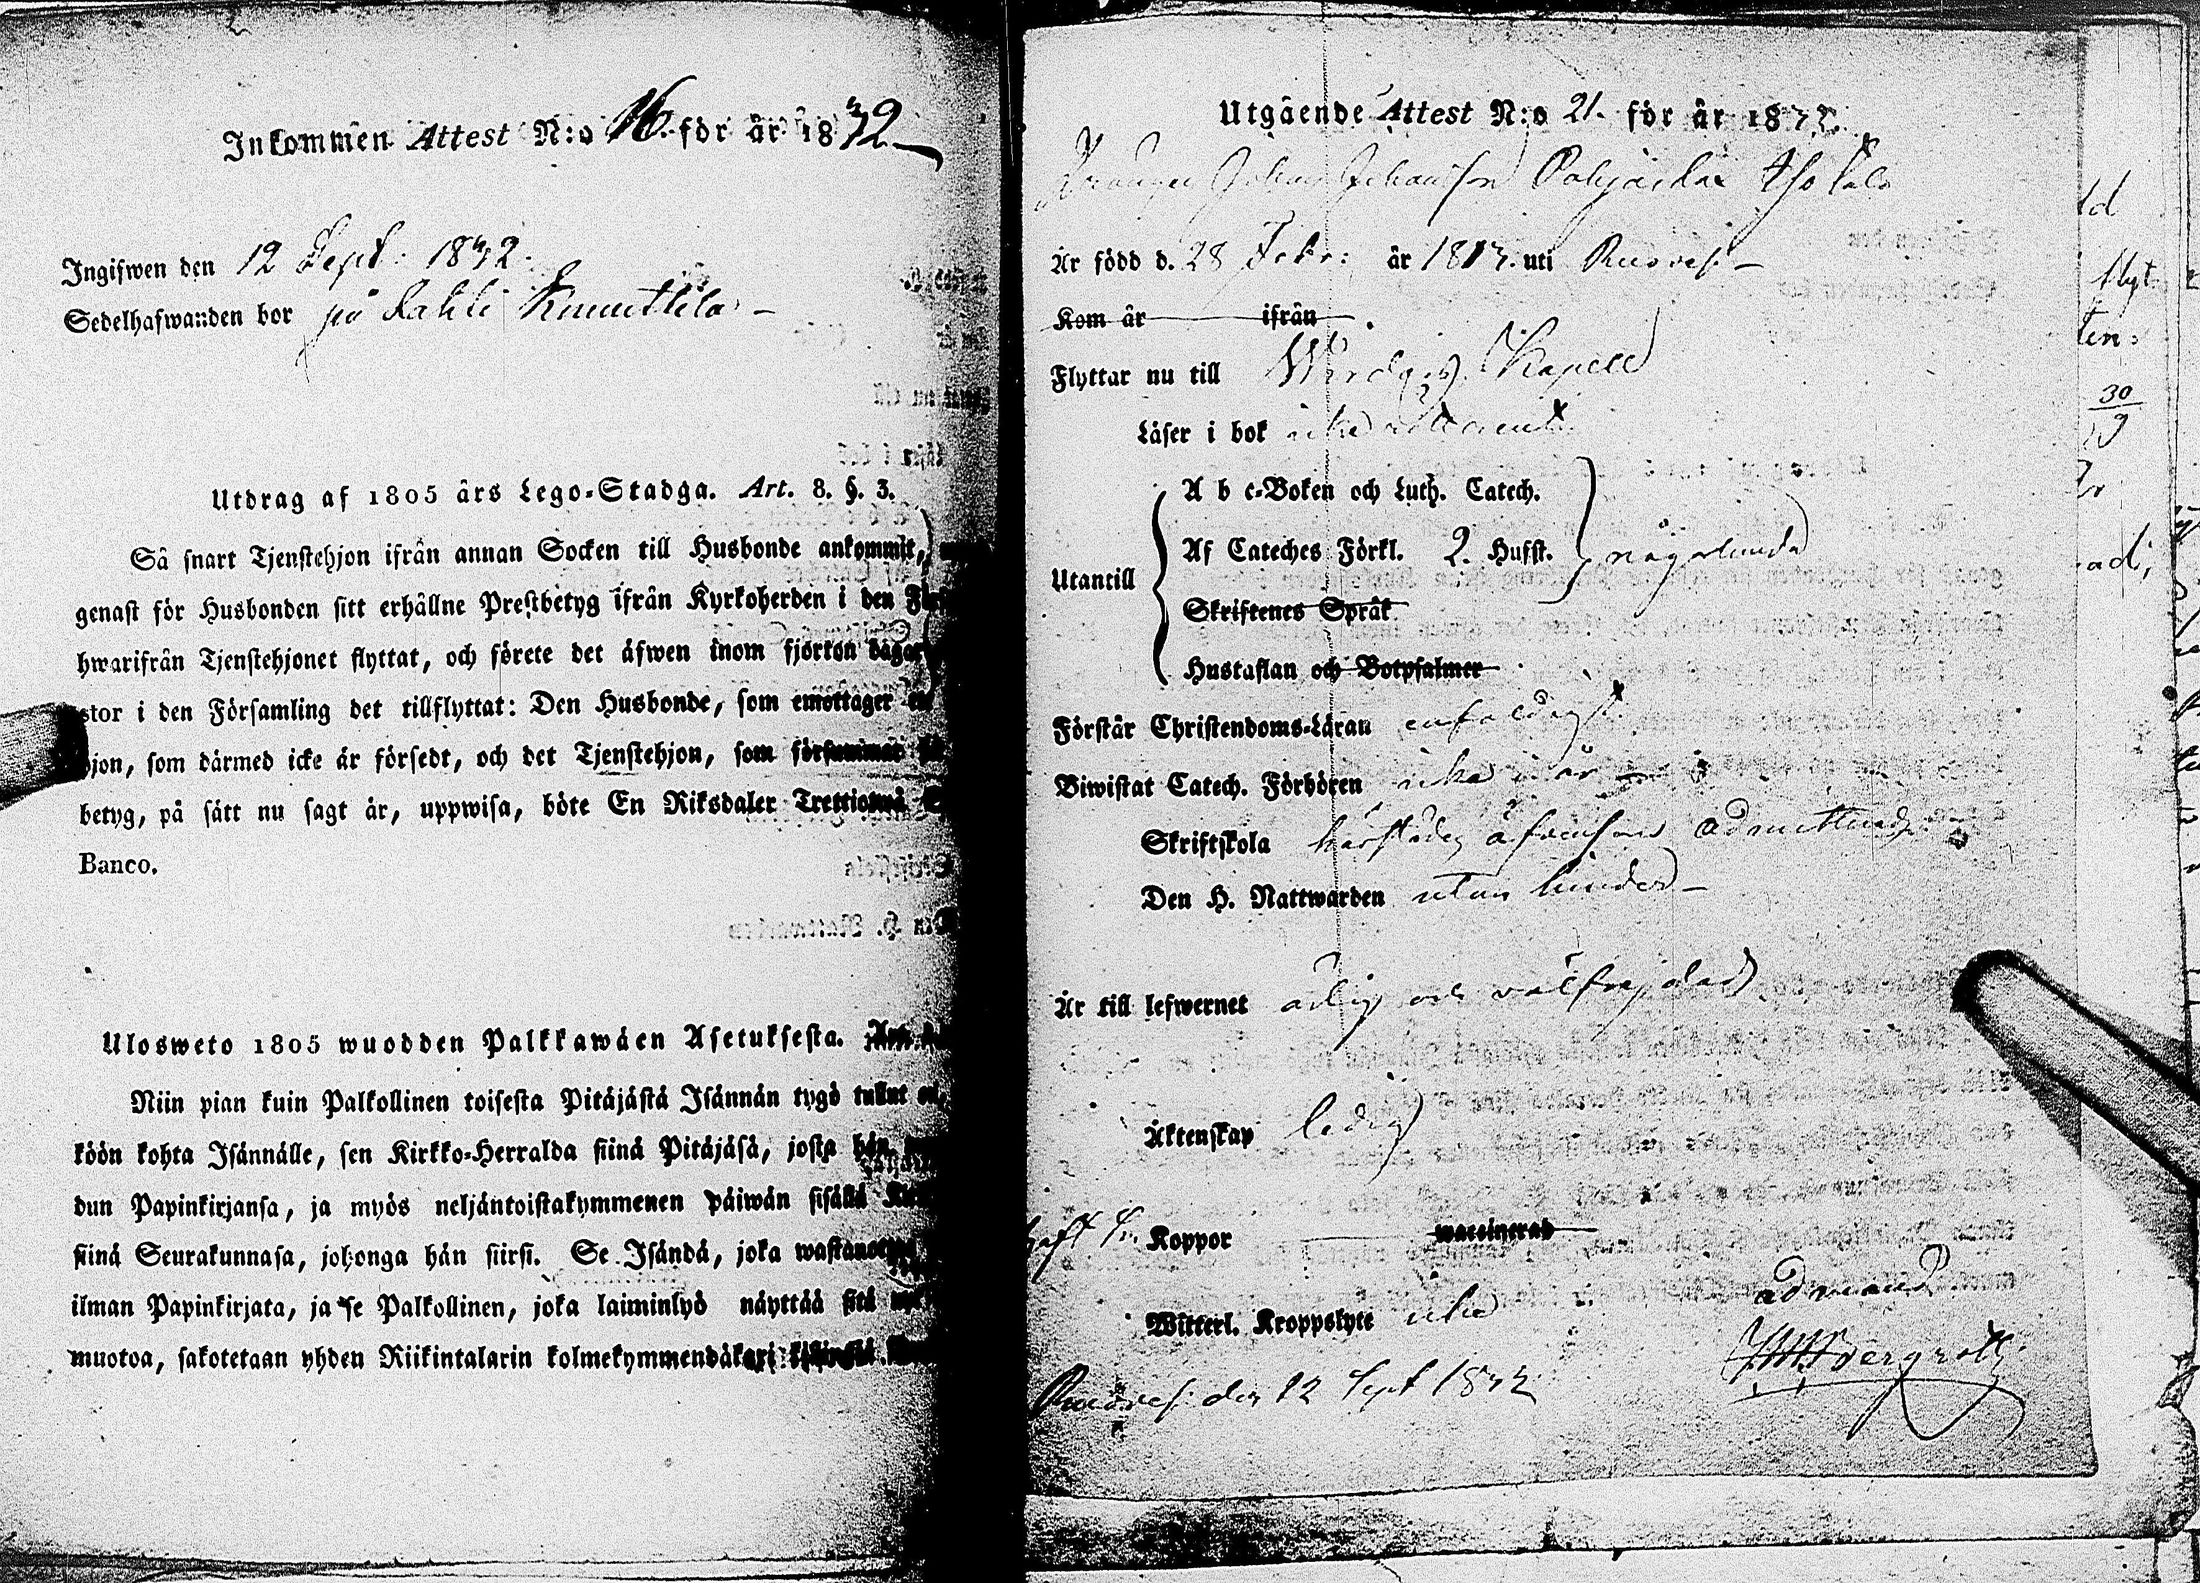 Inkommen Attest N:o 16. för år 1832
Ingifwen den 12 Sept: 1832.
Sedelhafwanden bor på Lahti Knuuttila
Utdrag af 1805 års Lego-Stadga. Art. 8. §. 3.
Så snart Tjenstehjon ifrån annan Socken till Husbonde ankommit,
genast för Husbonden sitt erhållne Prestbetyg ifrån Kyrkoherden i den
hwarifrån Tjenstehjonet flyttat, och förete det äfwen inom fjorton dagar
stor i den Församling det tillflyttat: Den Husbonde, som emottager
hjon, som därmed icke är försedt, och det Tjenstehjon, som försummar
betyg, på sätt nu sagt är, uppwisa, böte En Riksdaler Trettiotwå
Banco.
Ulosweto 1805 wuodden Palkkawäen Asetuksesta.
Niin pian kuin Palkollinen toisesta Pitäjästä Isännän tygö tullut on,
köön kohta Isännälle, sen Kirkko-Herralda siinä Pitäjäsä, josta hän
dun Papinkirjansa, ja myös neljäntoistakymmenen päiwän sisällä
siinä Seurakunnasa, johonga hän siirsi. Se Isändä, joka
ilman Papinkirjata, ja se Palkollinen, joka laiminlyö näyttää sitä
muotoa, sakotetaan yhden Riikintalarin
Utgående Attest N:o 21. för år 1832.
Drängen Johan Johansson
Är född d. 28 Febr: år 1813. uti Ruoves:
Kom år ifrån
Flyttar nu till Wirdois Kapell
Läser i bok
A b c-Boken och Luth. Catech.
Af Cateches Förkl. 2. Hufst. någorlunda
Utantill
Skriftenes Språk
Hustaflan och Botpsalmer
Förstår Christendoms-Läran enfaldigt
Biwistat Catech. Förhören icke i år
Skriftskola härstädes äfvensom admitterad
Den H. Nattwarden utan hinder
Är till lefwernet ärlig och välfrejdad
Äktenskap ledig
haft Koppor waccinerad
Witterl. Kroppslyte icke
Ruoves: den 12 Sept 1832